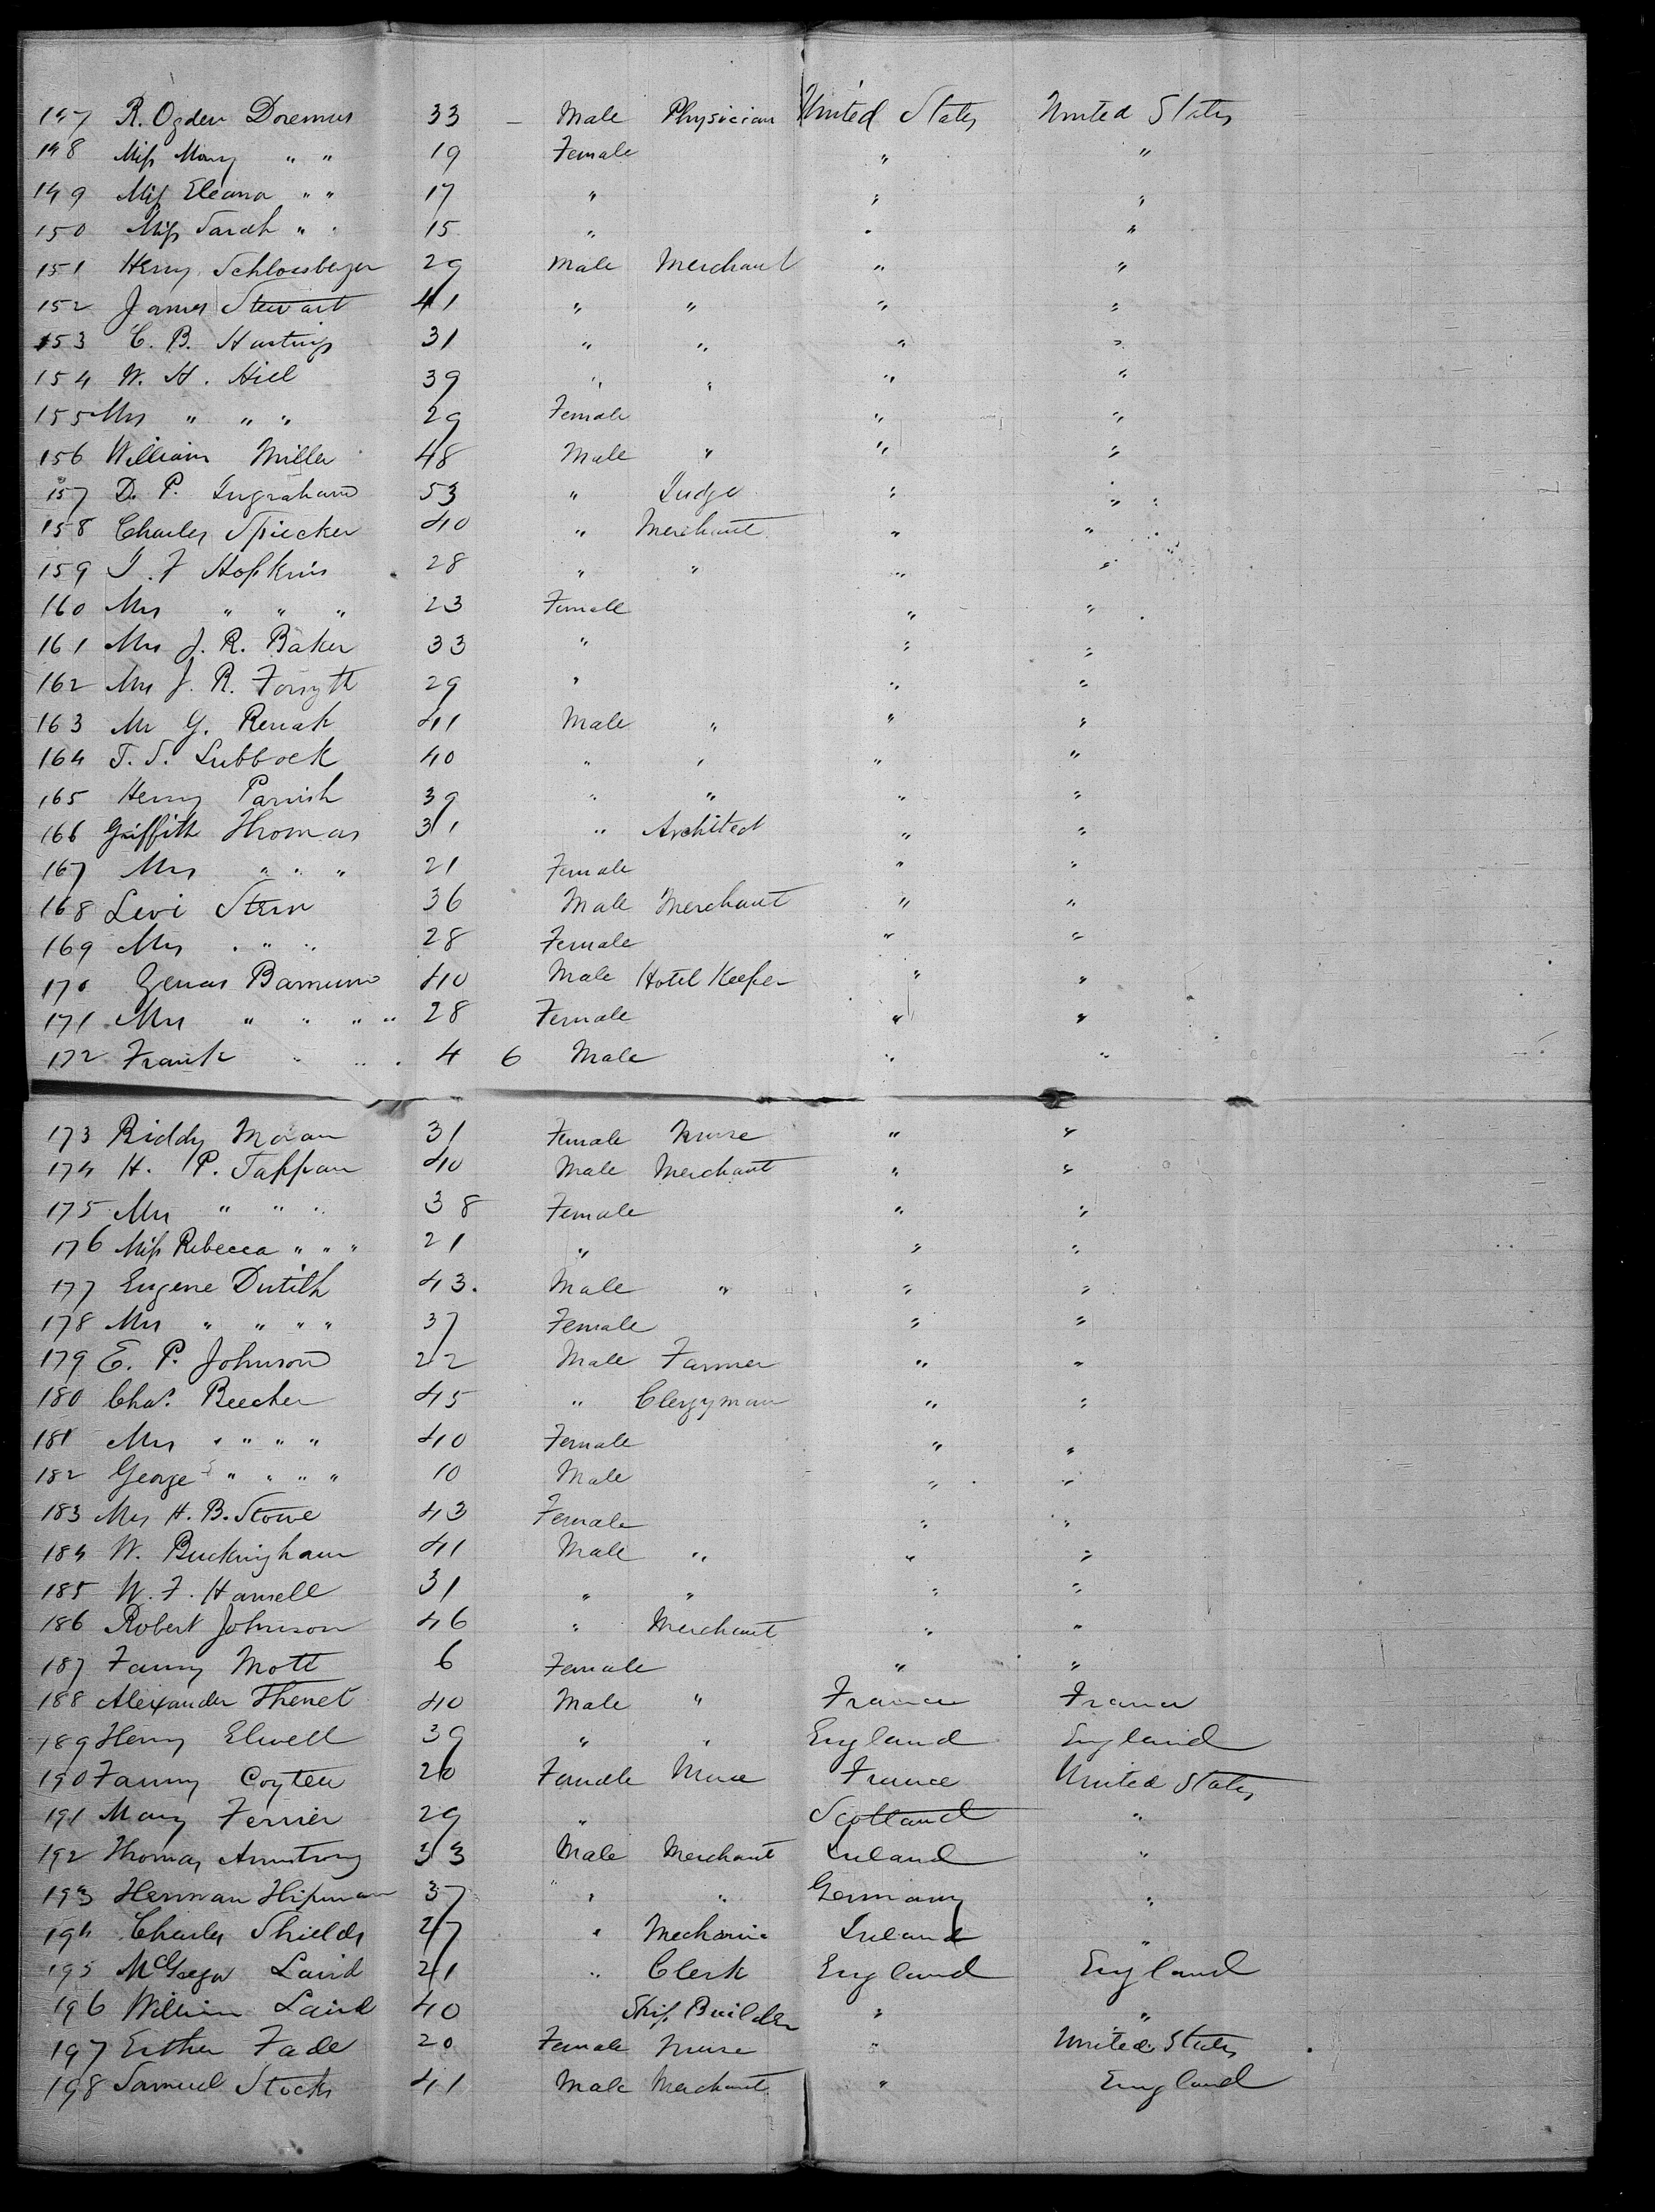 147 R. Ogden Doremus 33 – Male Physician United States United States
148 Miss Mary " " 19 Female " "
149 Miss Eleana " " 17 " " "
150 Miss Sarah " " 15 " " "
151 Henry Schlossberger 29 Male Merchant " "
152 James Stewart 41 " " " "
153 C. B. Hastings 31 " " " "
154 W. H. Hill 39 " " " "
155 Mrs " " " 29 Female " "
156 William Miller 48 Male " " "
157 D. P. Ingraham 53 " Judge " "
158 Charles Spiecker 40 " Merchant " "
159 J. F Hopkins 28 " " " "
160 Mrs " " " 23 Female " "
161 Mrs J. R. Baker 33 " " "
162 Mrs J. R. Forsyth 29 " " "
163 Mr G. 41 Male " " "
164 T. S. Lubbock 40 " " " "
165 Henry Parish 39 " " " "
166 Griffith Thomas 31 " Architect " "
167 Mrs " " " 21 Female " "
168 Levi Stern 36 Male Merchant " "
169 Mrs " " " 28 Female " "
170 Zenas Barnum 40 Male Hotel Keeper " "
171 Mrs " " " " 28 Female " "
172 Frank " " " 4 6 Male " "
173 Biddy Moran 31 Female Nurse " "
174 H. P. Tappan 40 Male Merchant " "
175 Mrs " " " 38 Female " "
176 Miss Rebecca " " " 21 " " "
177 Eugene Dutilh 43. Male " " "
178 Mrs " " " " 37 Female " "
179 E. P. Johnson 22 Male Farmer " "
180 Chas. Beecher 45 " Clergyman " "
181 Mrs " " " " 40 Female " "
182 George " " " " 10 Male " "
183 Mrs H. B. Stowe 43 Female " "
184 W. Buckingham 41 Male " " "
185 W. F. 31 " " " "
186 Robert Johnson 46 " Merchant " "
187 Fanny Mott 6 Female " "
188 Alexander Thenet 40 Male " France France
189 Henry Elwell 39 " " England England
190 Fanny 20 Female Nurse France United States
191 Mary Ferrier 29 " Scotland "
192 Thomas Armstrong 33 Male Merchant Ireland "
193 Herman 37 " " Germany "
194 Charles Shields 27 " Mechanic Ireland "
195 McGregor Laird 21 " Clerk England England
196 William Laird 40 Ship Builder " "
197 Esther Fade 20 Female Nurse " United States
198 Samuel Stocks 41 Male Merchant " England